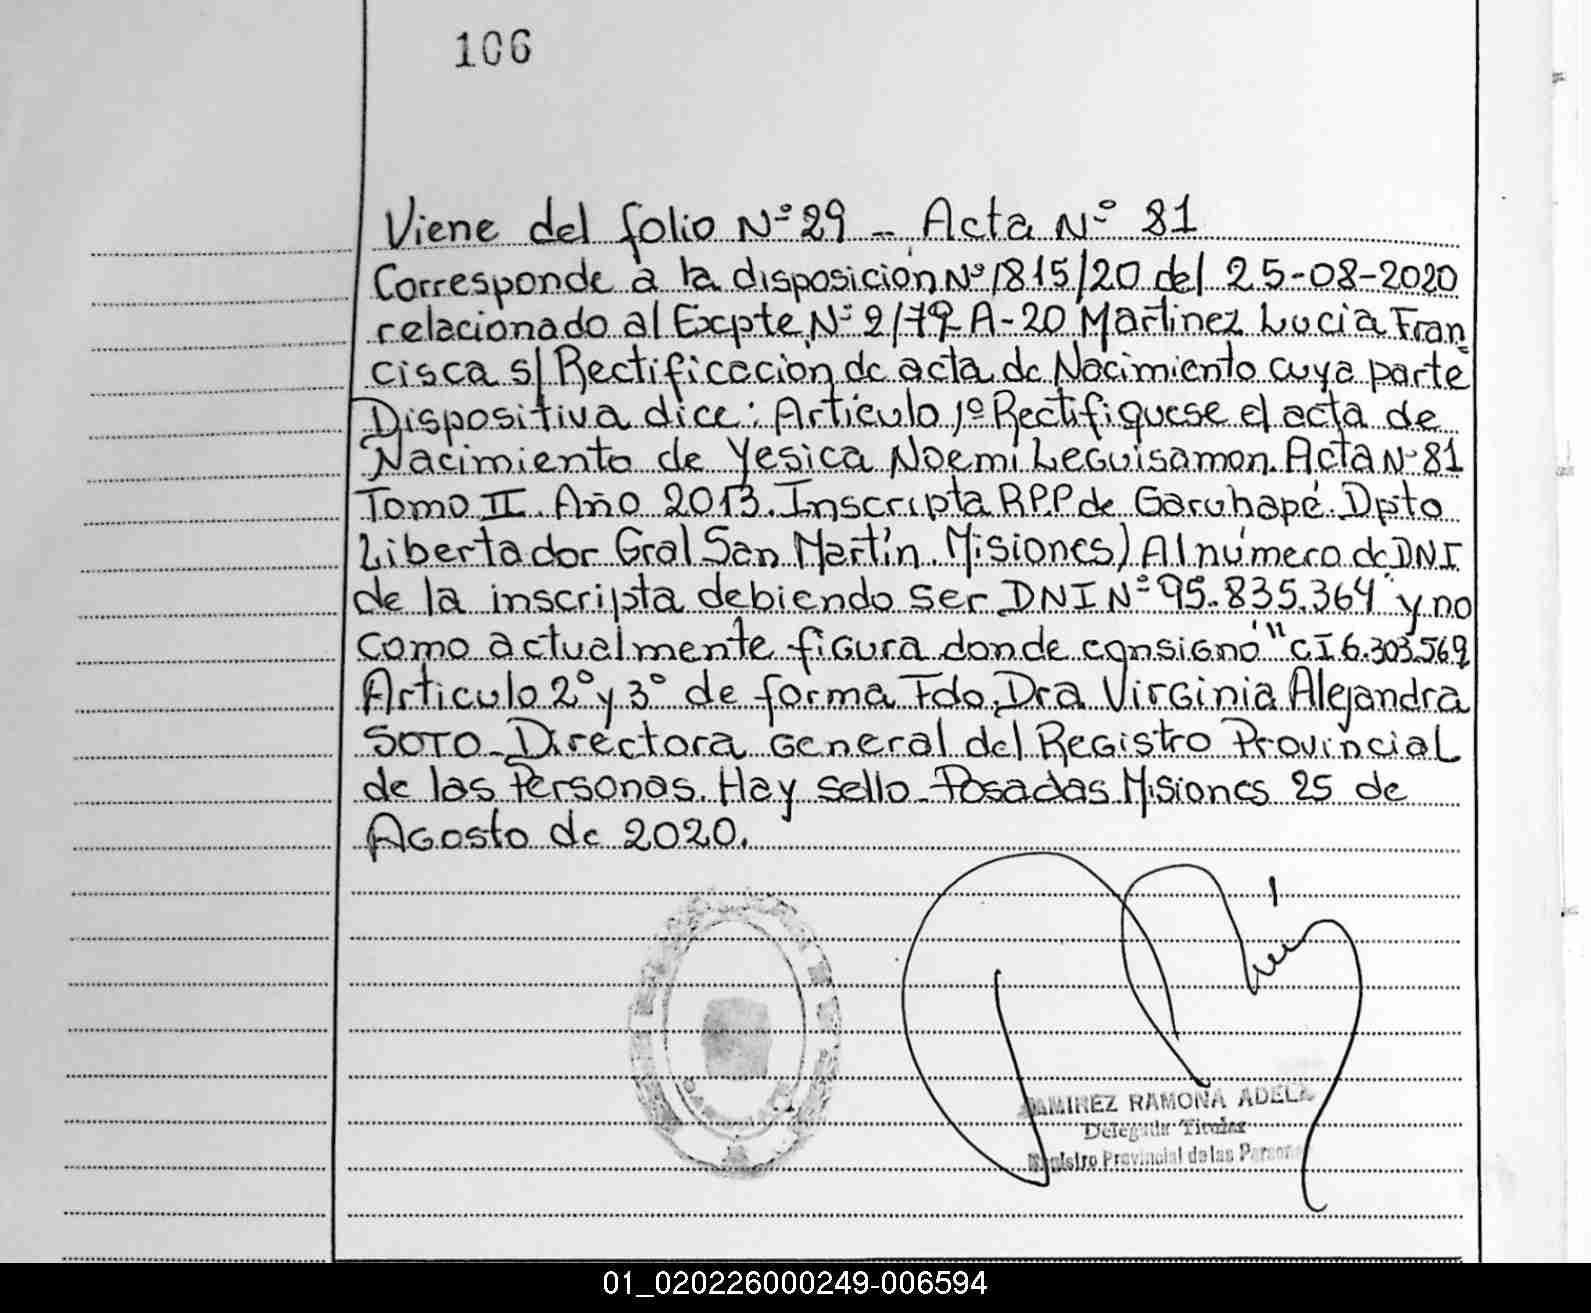 106
Viene del folio Nº 29 - Acta Nº 81
Corresponde a la disposición Nº 1815/20 del 25-08-2020
relacionado al Excpte Nº 2179 A-20 Martinez Lucia Fran
cisca s/ Rectificación de acta de Nacimiento cuya parte
Dispositiva dice: Artículo 1º Rectifiquese el acta de
Nacimiento de Yesica Noemi Leguisamon. Acta Nº 81
Tomo II. Año 2013. Inscripta R.P.P de Garuhapé. Dpto
Libertador Gral San Martín. Misiones) Al número de DNI
de la inscripta debiendo ser DNI Nº 95.835.364 y no
como actualmente figura donde consignó "CI 6.303.569
Articulo 2º y 3º de forma Fdo. Dra Virginia Alejandra
SOTO - Directora General del Registro Provincial
de las Personas. Hay sello. Posadas Misiones 25 de
Agosto de 2020.
RAMIREZ RAMONA ADELA
Delegada Titular
Registro Provincial de las Personas
01_020226000249-006594